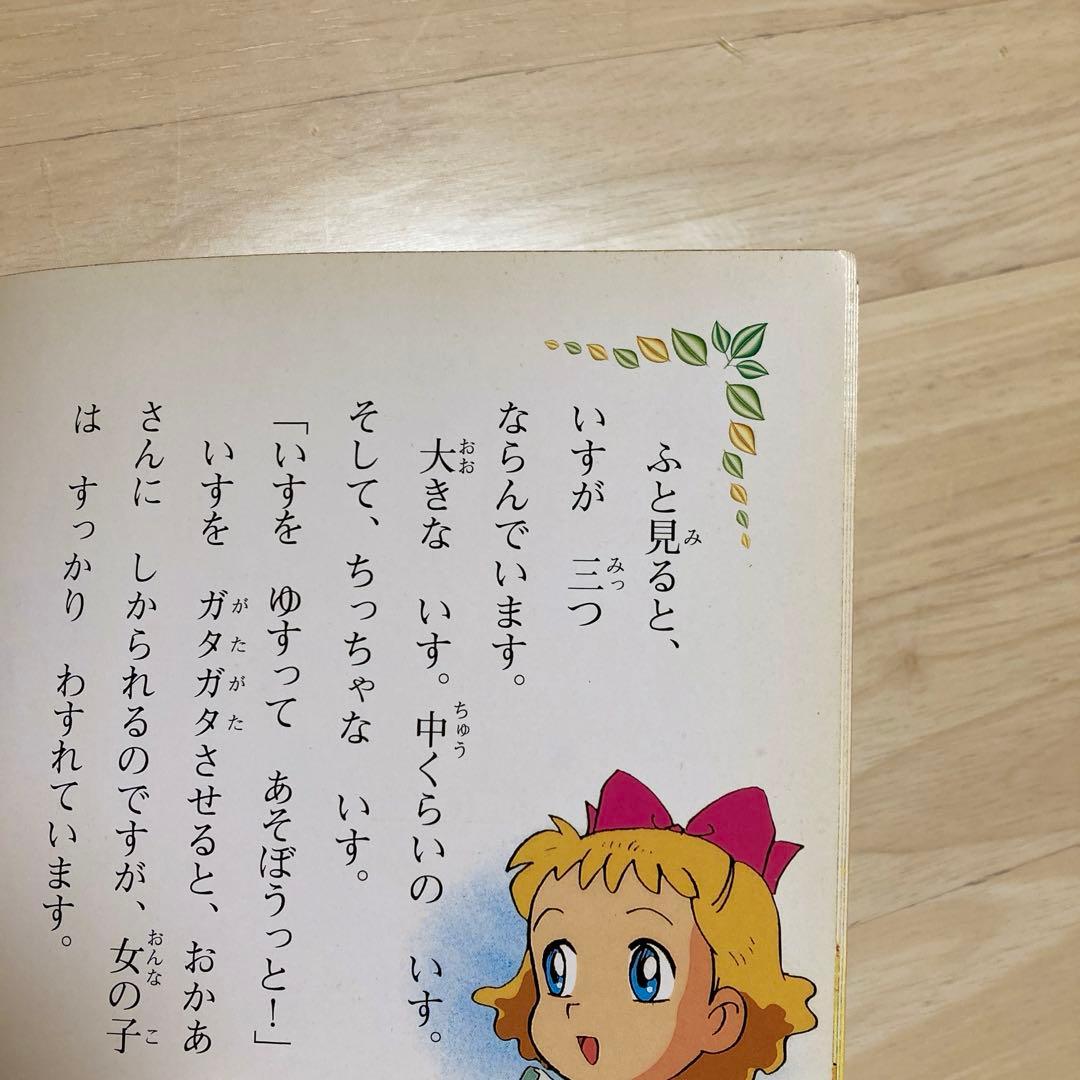 ふと見ると、
いすが　三つ
ならんでいます。
大きな　いす。中くらいの　いす。
そして、ちっちゃな　いす。
「いすを　ゆすって　あそぼうっと！」
いすを　ガタガタさせると、おかあ
さんに　しかられるのですが、女の子
は　すっかり　わすれています。